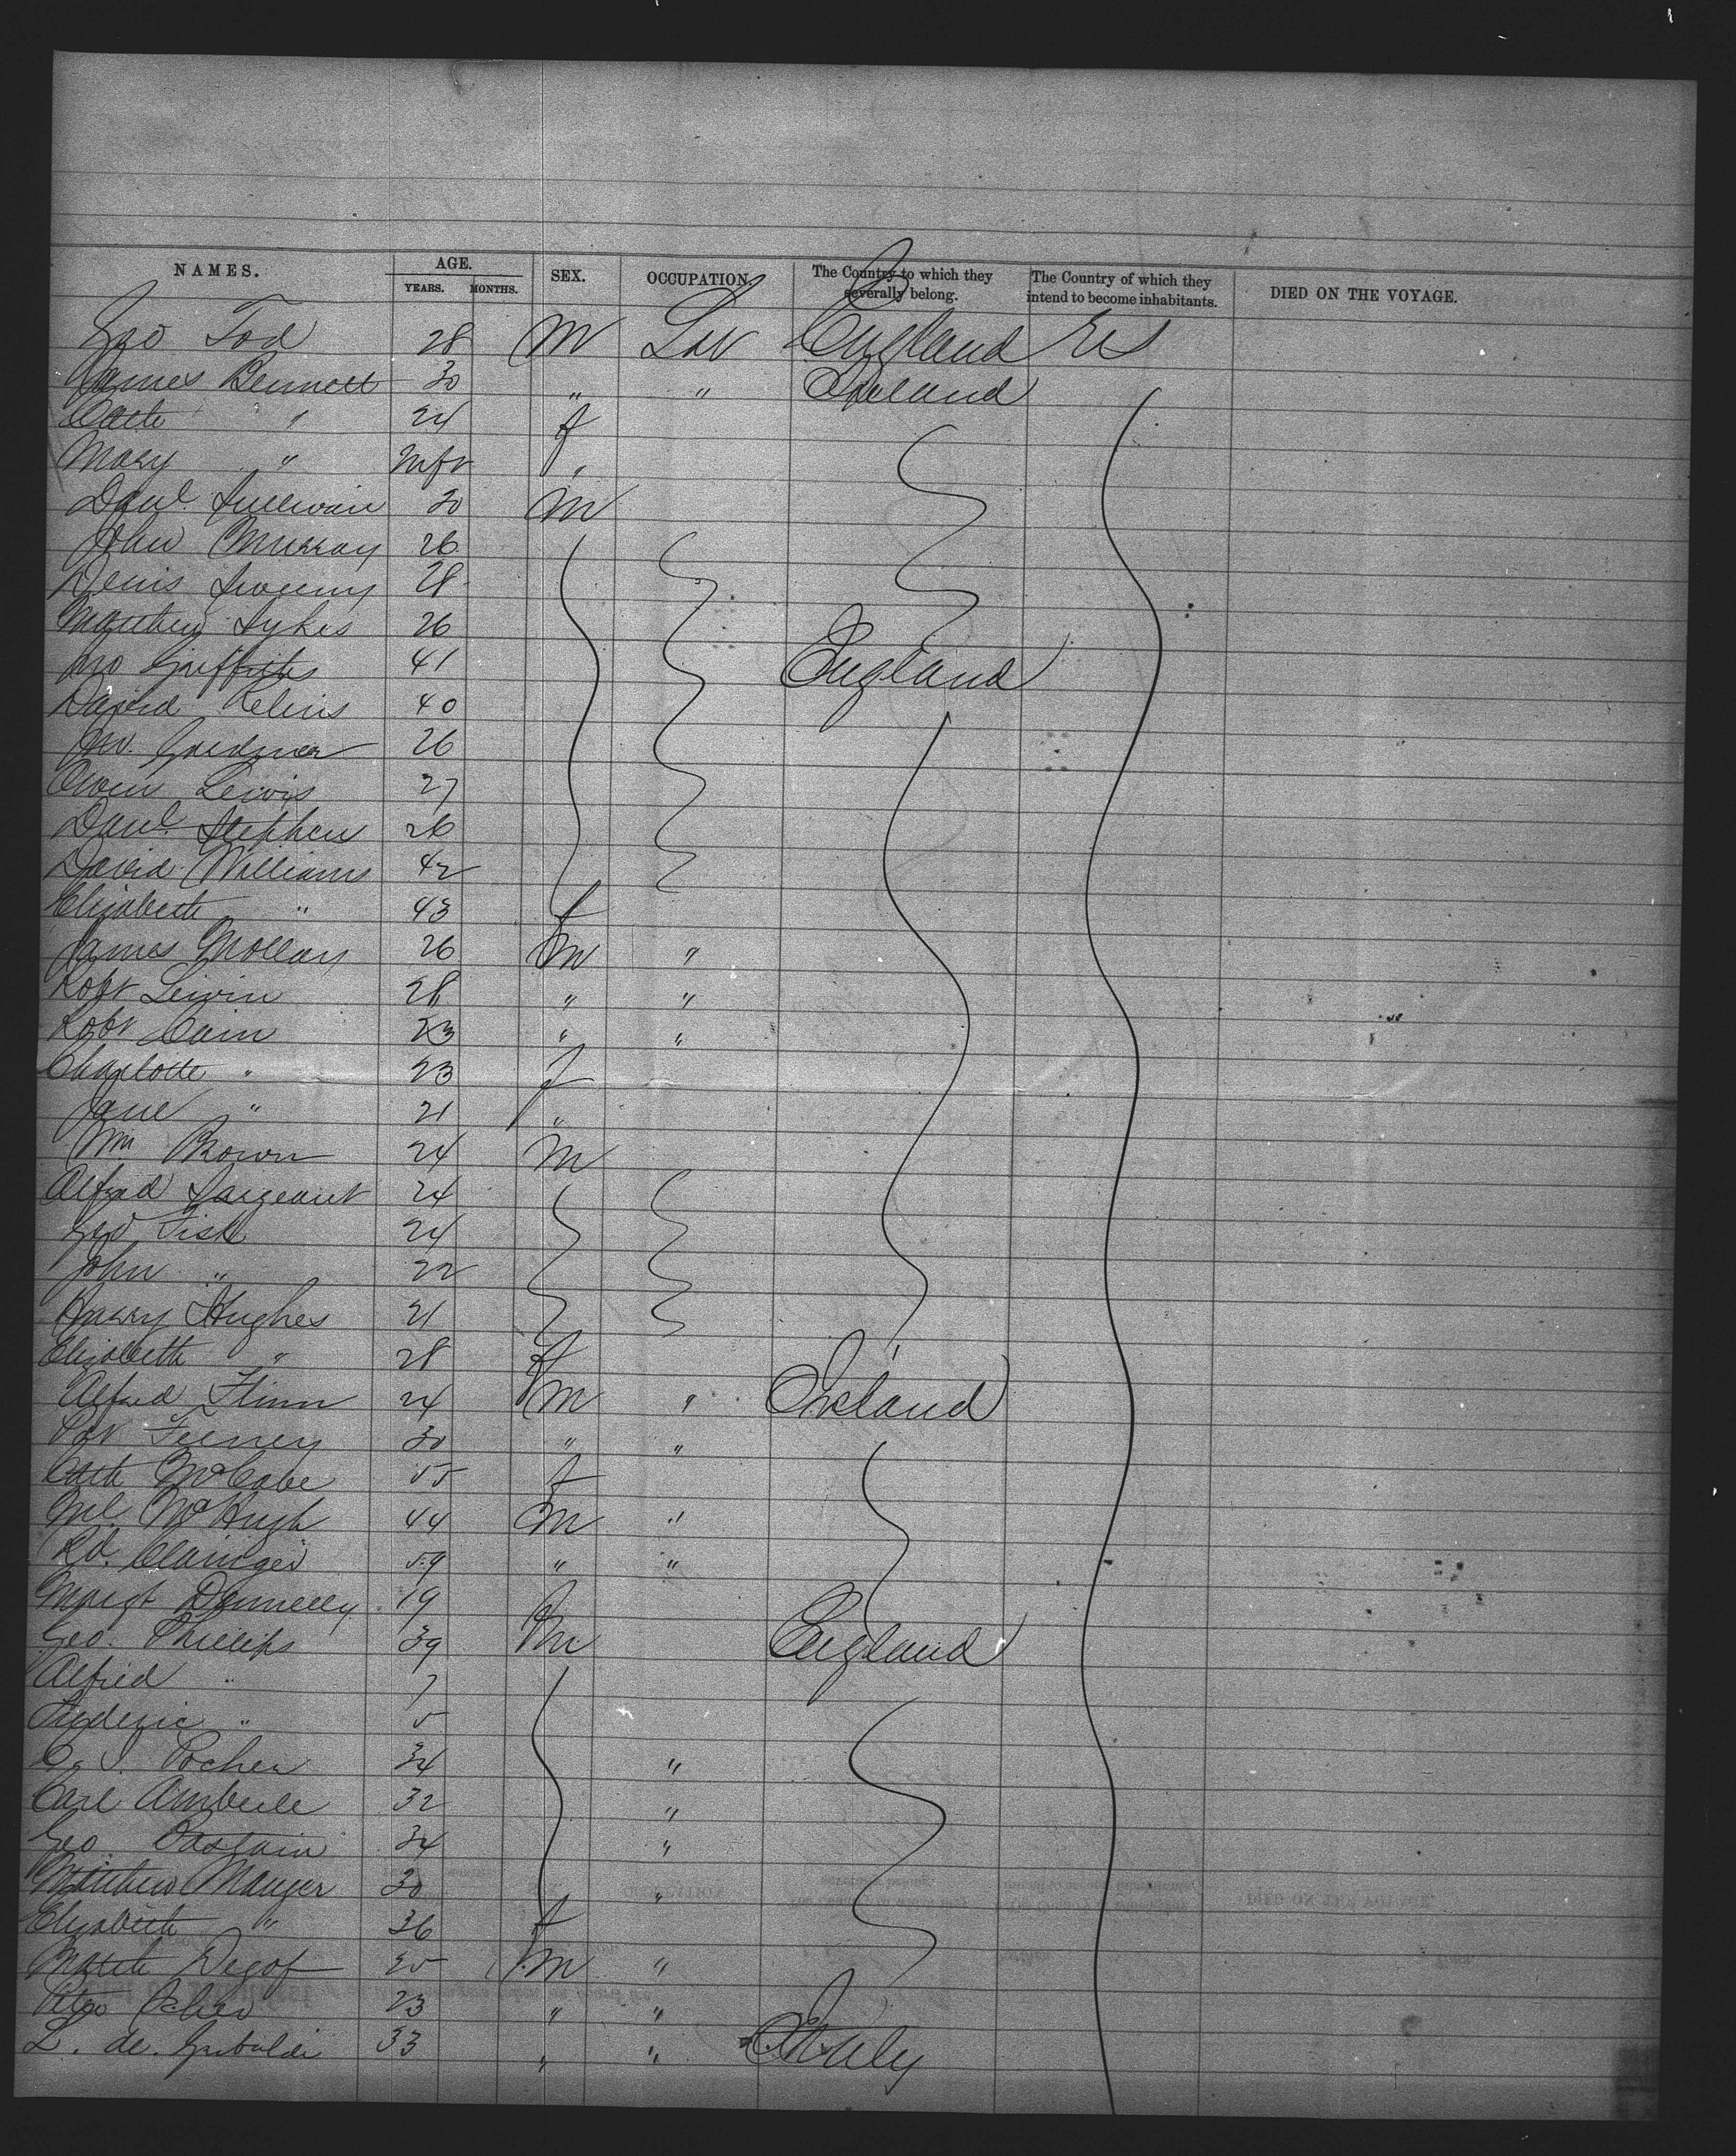 NAMES. AGE. YEARS. MONTHS. SEX. OCCUPATION. The Country to which they severally belong. The Country of which they intend to become inhabitants. DIED ON THE VOYAGE.
Geo Tod 28 M Lab England US
James Bennett 30 " " Ireland
Cath " 24 f
Mary " Inft "
Danl Sullivan 30 M
John Murray 26
Denis Sweeny 28
Matthew Sykes 26
Jno Griffiths 41 England
David 40
Jno. Gardner 26
Owen Lewis 27
Danl Stephen 26
David Williams 42
Elizabeth " 43 f
James Mollay 26 M "
Robt Lewin 28 " "
Robt Cain 23 " "
Charlotte " 23 f
Jane " 21 "
Wm Brown 24 M
Alfred Sargeant 24
Geo Fisk 24
John " 22
Harry Hughes 21
Elizabeth " 28 f
Alfred Flinn 24 M " Ireland
Pat Feeney 30 " "
Cath McCabe 55 f
Ml McHugh 44 M "
Rd. 59 " "
Margt Donnelly 19
Geo. Phillips 39 M England
Alfred " 7
Frederic " 5
C. J. Pocher 34 "
Carl Amberle 32 "
Geo 34 "
Matthew Mauger 30 "
Elizabeth " 36 f
Degof 25 M "
23 " "
L. de. 33 " " Italy